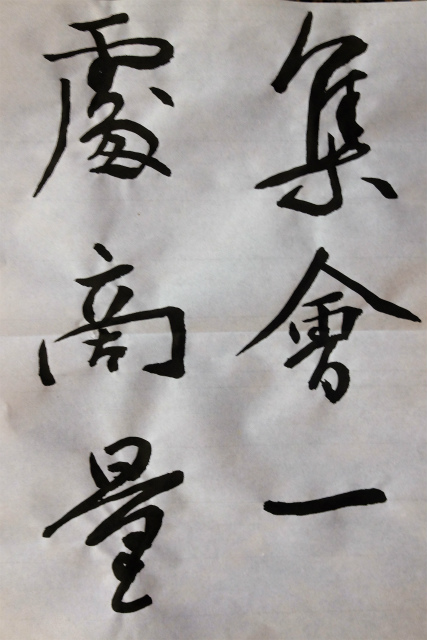 集會一
處商量